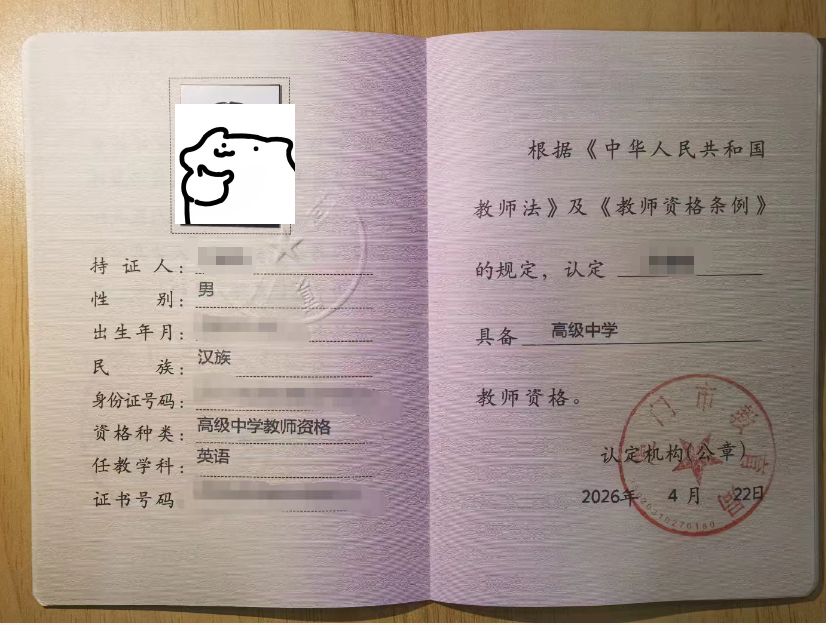 持证人：
性别：男
出生年月：
民族：汉族
身份证号码：
资格种类：高级中学教师资格
任教学科：英语
证书号码
根据《中华人民共和国
教师法》及《教师资格条例》
的规定，认定
具备 高级中学
教师资格。
认定机构(公章)
2026年 4 月 22日
门市教育局